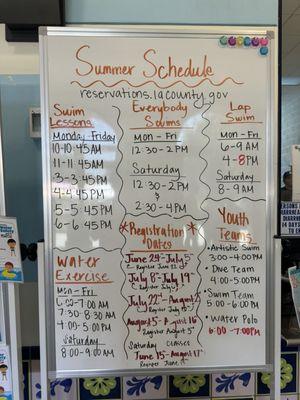 Summer Schedule
reservations.lacounty.gov
Swim
Lessons
Monday-Friday
10-10:45AM
11-11:45AM
3-3:45PM
4-4:45PM
5-5:45PM
6-6:45PM
Water
Exercise
Mon-Fri
7:30-8:30AM
4:00-5:00PM
Saturday
8:00-9:00AM
Everybody
Swims
Mon-Fri
12:30-2PM
Saturday
12:30-2PM
&
2:30-4PM
*Registration*
Dates
June 24-July 5
July 8-July 19
July 22-August 2
August 5-August 16
Saturday Classes
June 15-August 17
Lap
Swim
Mon-Fri
6-9AM
4-8PM
Saturday
8-9AM
Youth
Teams
• Artistic Swim
3:00-4:00PM
• Dive Team
4:00-5:00PM
• Swim Team
5:00-6:00PM
• Water Polo
6:00-7:00PM